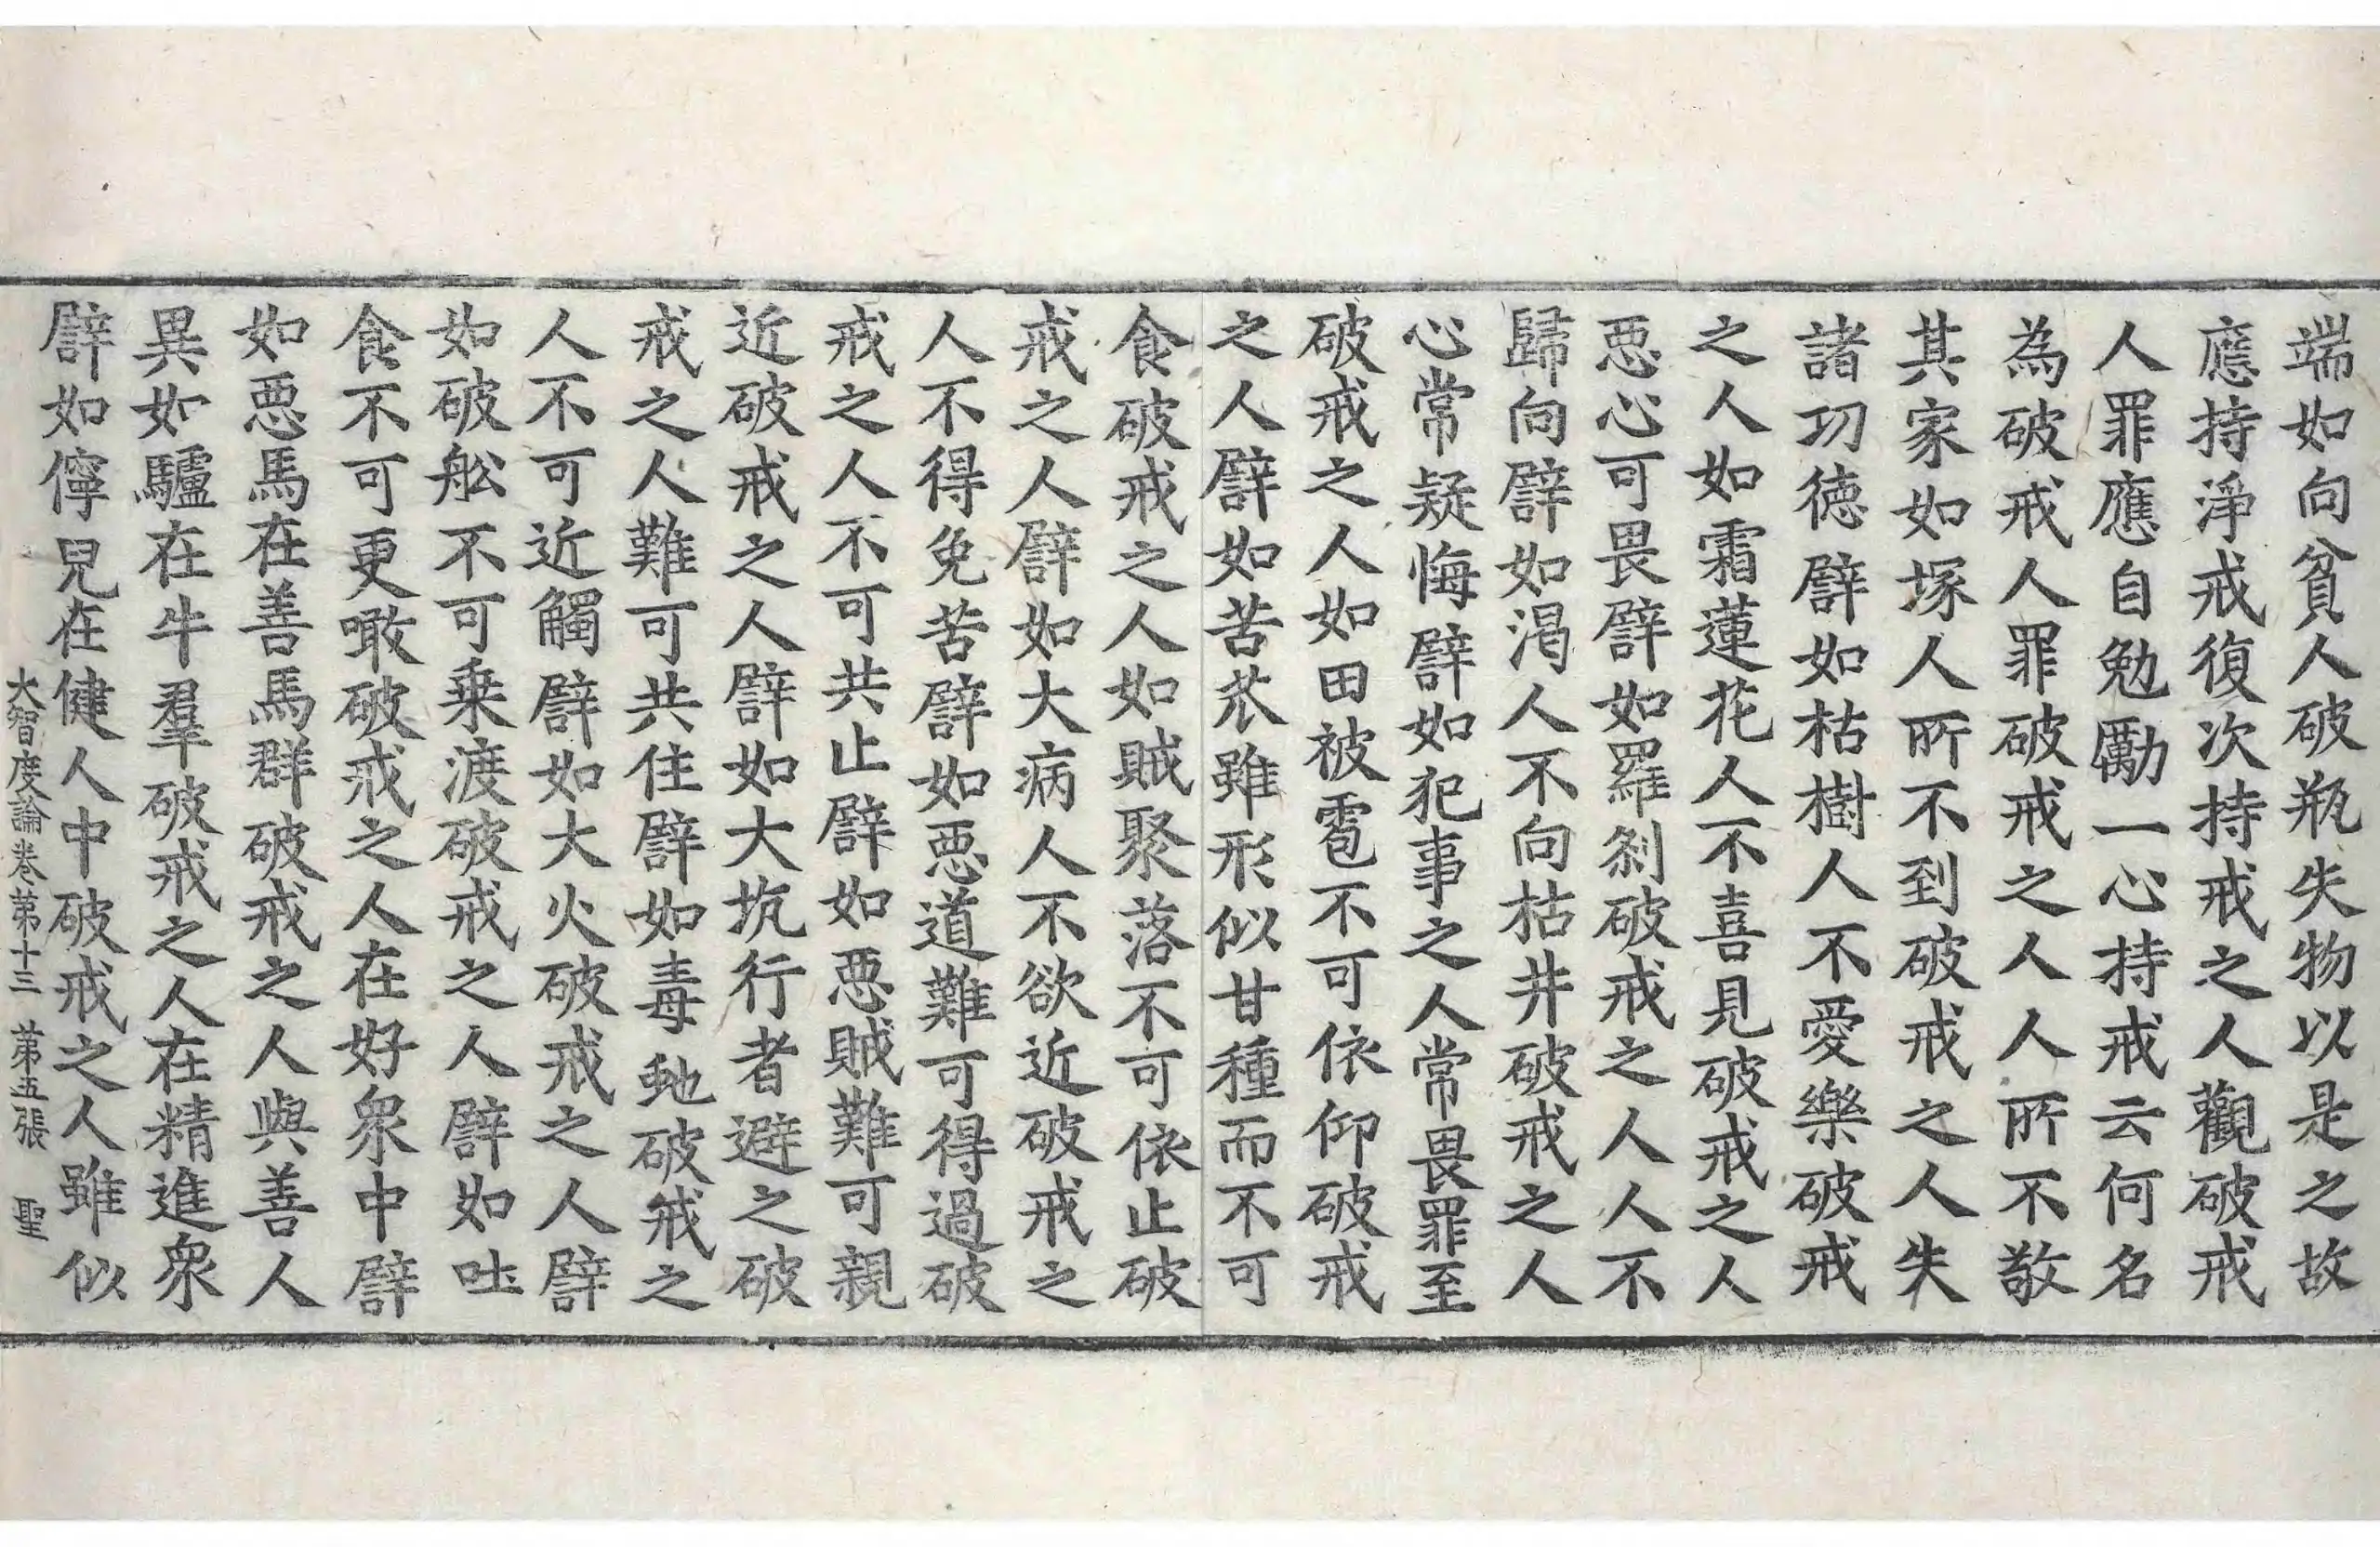 端如向貧人破瓶失物以是之故
應持淨戒復次持戒之人觀破戒
人罪應自勉勵一心持戒云何名
為破戒人罪破戒之人人所不敬
其家如塚人所不到破戒之人失
諸功德譬如枯樹人不愛樂破戒
之人如霜蓮花人不喜見破戒之人
惡心可畏譬如羅剎破戒之人人不
歸向譬如渴人不向枯井破戒之人
心常疑悔譬如犯事之人常畏罪至
破戒之人如田被雹不可依仰破戒
之人譬如苦苽雖形似甘種而不可
食破戒之人如賊聚落不可依止破
戒之人譬如大病人不欲近破戒之
人不得免苦譬如惡道難可得過破
戒之人不可共止譬如惡賊難可親
近破戒之人譬如大坑行者避之破
戒之人難可共住譬如毒虵破戒之
人不可近觸譬如大火破戒之人譬
如破舩不可乗渡破戒之人譬如吐
食不可更噉破戒之人在好衆中譬
如惡馬在善馬群破戒之人與善人
異如驢在牛羣破戒之人在精進衆
譬如儜兒在健人中破戒之人雖似
大智度論卷第十三 第五張 聖